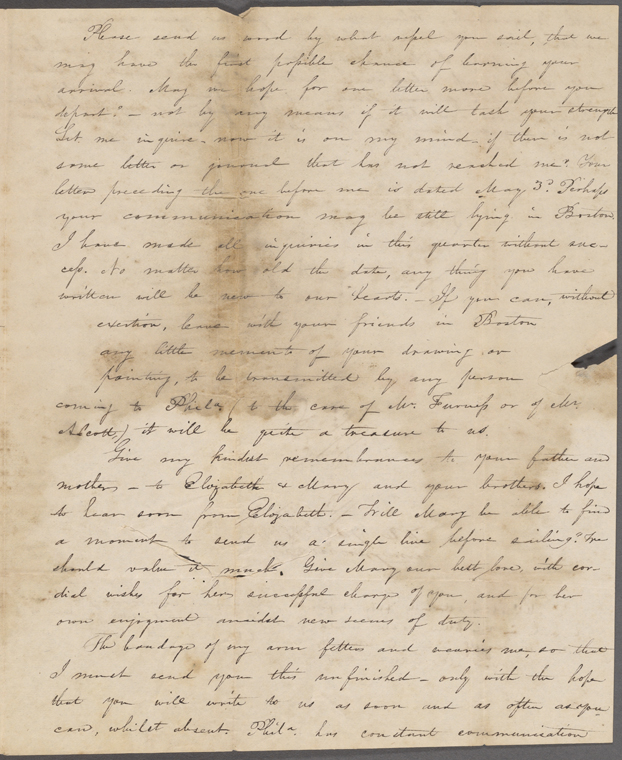 Please send us word by what vessel you sail, that we
may have the first possible chance of learning your
arrival. May we hope for one letter more before you
depart? – not by any means if it will task your strength
Let me inquire – now it is on my mind – if there is not
some letter or journal that has not reached me? Your
letter preceding the one before me is dated May 3d. Perhaps
your communication may be still lying in Boston
I have made all inquiries in this quarter without suc-
cess. No matter how old the date, any thing you have
written will be new to our hearts. – If you can, without
exertion, leave with your friends in Boston
any little memento of your drawing or
painting, to be transmitted by any person
coming to Phila (to the care of Mr. Furness or of Mr.
Scott,) it will be quite a treasure to us.
Give my kindest remembrances to your father and
mother – to Elizabeth & Mary and your brothers. I hope
to hear soon from Elizabeth. – Will Mary be able to find
a moment to send us a single line before sailing? We
should value it much. Give Mary our best love, with cor-
dial wishes for her successful charge of you, and for her
own enjoyment amidst new scenes of duty.
The bandage of my arm fetters and wearies me, so that
I must send you this unfinished – only with the hope
that you will write to us as soon and as often as you
can, whilst absent. Phila. has constant communication